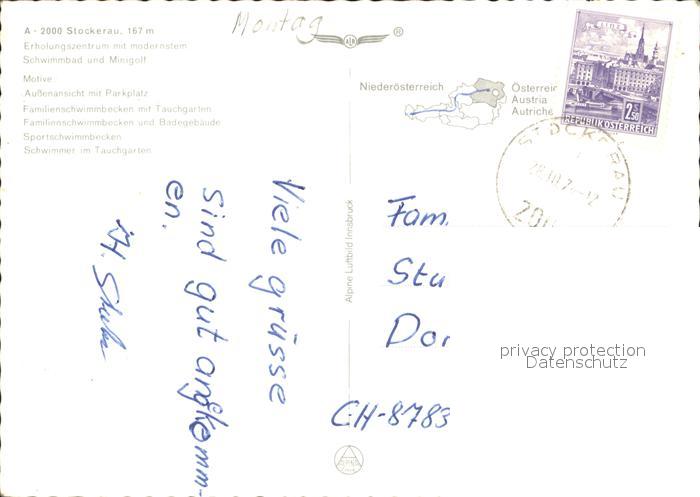 Montag
A - 2000 Stockerau, 167 m
Erholungszentrum mit modernstem
Schwimmbad und Minigolf
Motive:
Außenansicht mit Parkplatz
Familienschwimmbecken mit Tauchgarten
Familienschwimmbecken und Badegebäude
Sportschwimmbecken
Schwimmer im Tauchgarten
®
Niederösterreich
Österrei
Austria
Autriche
LINZ
2.50
REPUBLIK ÖSTERREICH
STOCKERAU
200
Viele grüsse
sind gut angekomm-
en.
Alpine Luftbild Innsbruck
Fam.
Stu
Dor
CH-8783
privacy protection
Datenschutz